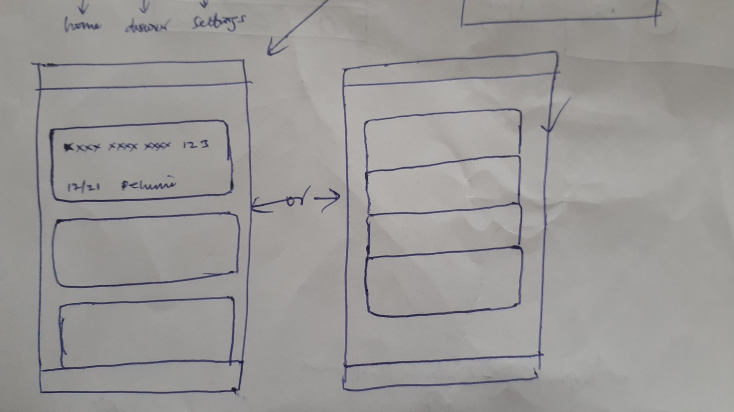 home drawer settings
xxxx xxxx xxxx 123
12/21 Pelumi
or